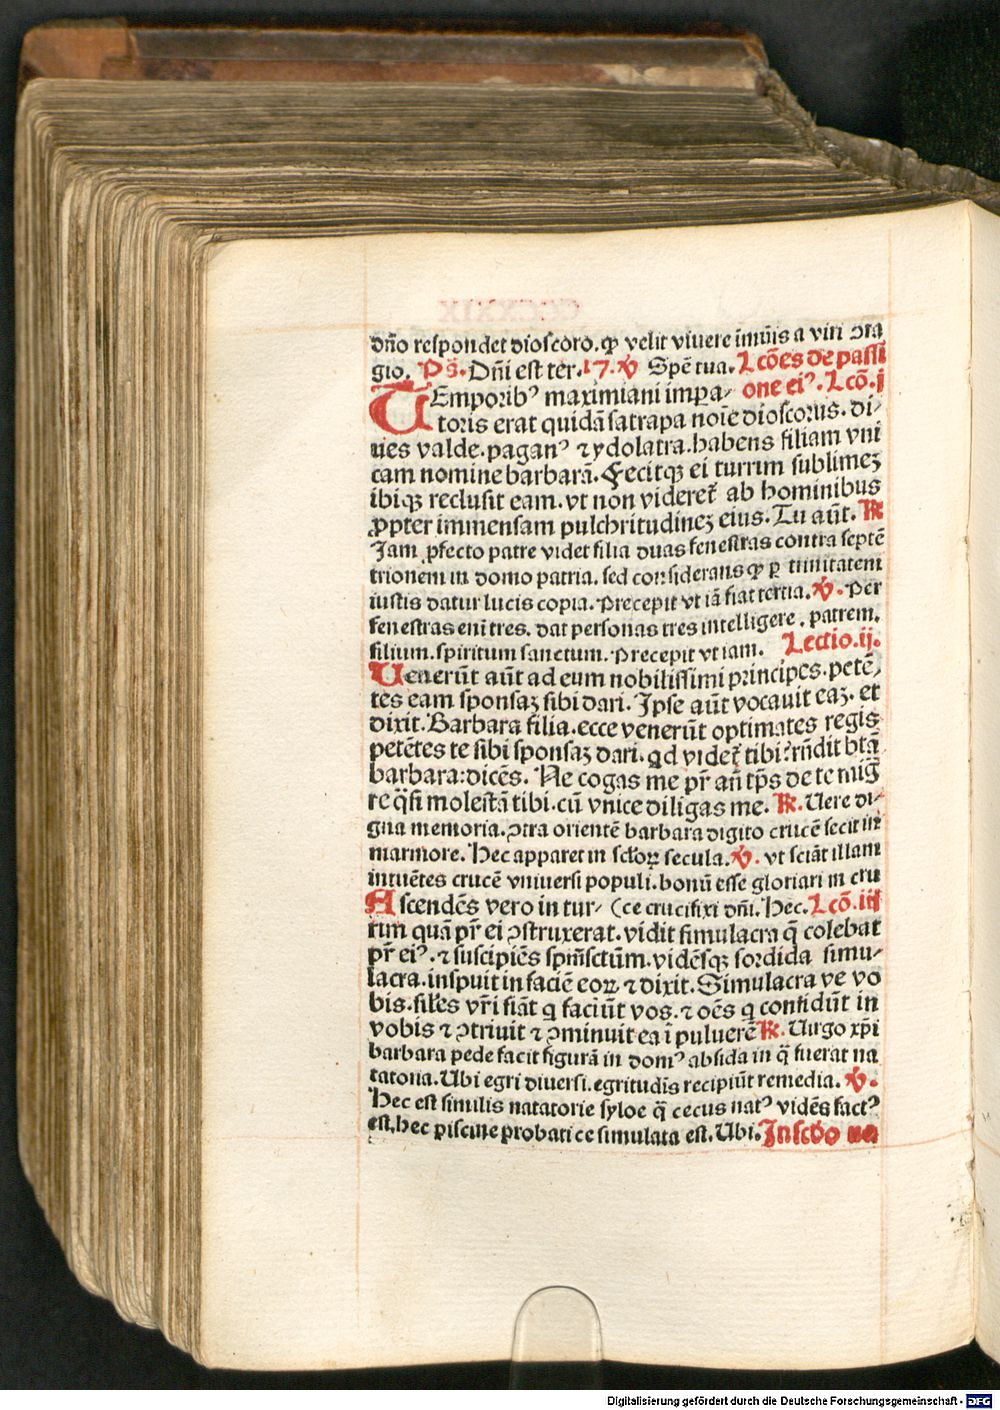 dn̄o respondet dioscoro. ꝙ velit viuere īmūis a viri ↄta
gio. Ps̄. Dn̄i est ter. 17. ℣ Spē tua. Lcōes de passi
one eiꝰ. Lcō. j
TEmporibꝰ maximiani impa⸗
toris erat quidā satrapa noīe dioscorus. di⸗
ues valde. paganꝰ ⁊ ydolatra. habens filiam vni
cam nomine barbarā. Fecitqꝫ ei turrim sublimeꝫ
ibiqꝫ reclusit eam. vt non videret̄ ab hominibus
ꝓpter immensam pulchritudineꝫ eius. Tu aūt. ℟
Iam ꝓfecto patre videt filia duas fenestras contra septē
trionem in domo patria. sed considerans ꝙ ꝑ trinitatem
iustis datur lucis copia. Precepit vt iā fiat tertia. ℣. Per
fenestras enī tres. dat personas tres intelligere. patrem.
filium. spiritum sanctum. Precepit vt iam. Lectio. ij.
Uenerūt aūt ad eum nobilissimi principes. petē⸗
tes eam sponsaꝫ sibi dari. Ipse aūt vocauit eaꝫ. et
dixit. Barbara filia. ecce venerūt optimates regis
petētes te sibi sponsaꝫ dari. qd videt̄ tibi? rn̄dit btā
barbara: dicēs. Ne cogas me pr̄ an̄ tp̄s de te miḡ
re q̄si molestā tibi. cū vnice diligas me. ℟. Uere di⸗
gna memoria. ↄtra orientē barbara digito crucē fecit in
marmore. Hec apparet in sctōꝝ secula. ℣. vt sciāt illam
intuētes crucē vniuersi populi. bonū esse gloriari in cru
Ascendēs vero in tur⸗ (ce crucifixi dn̄i. Hec. Lcō. iij
rim quā pr̄ ei ↄstruxerat. vidit simulacra q̄ colebat
pr̄ eiꝰ. ⁊ suscipiēs spm̄sctūm. vidēsqꝫ sordida simu⸗
lacra. inspuit in faciē eoꝝ ⁊ dixit. Simulacra ve vo
bis. sil̄es vr̄i fiāt q faciūt vos. ⁊ oēs q confidūt in
vobis ⁊ ↄtriuit ⁊ ↄminuit ea ī puluerē ℟. Uirgo xp̄i
barbara pede facit figurā in domꝰ absida in q̄ fuerat na
tatoria. Ubi egri diuersi. egritudīs recipiūt remedia. ℣.
Hec est similis natatorie syloe q̄ cecus natꝰ vidēs factꝰ
est. hec piscine probatice simulata est. Ubi. In sctōo na
Digitalisierung gefördert durch die Deutsche Forschungsgemeinschaft - DFG